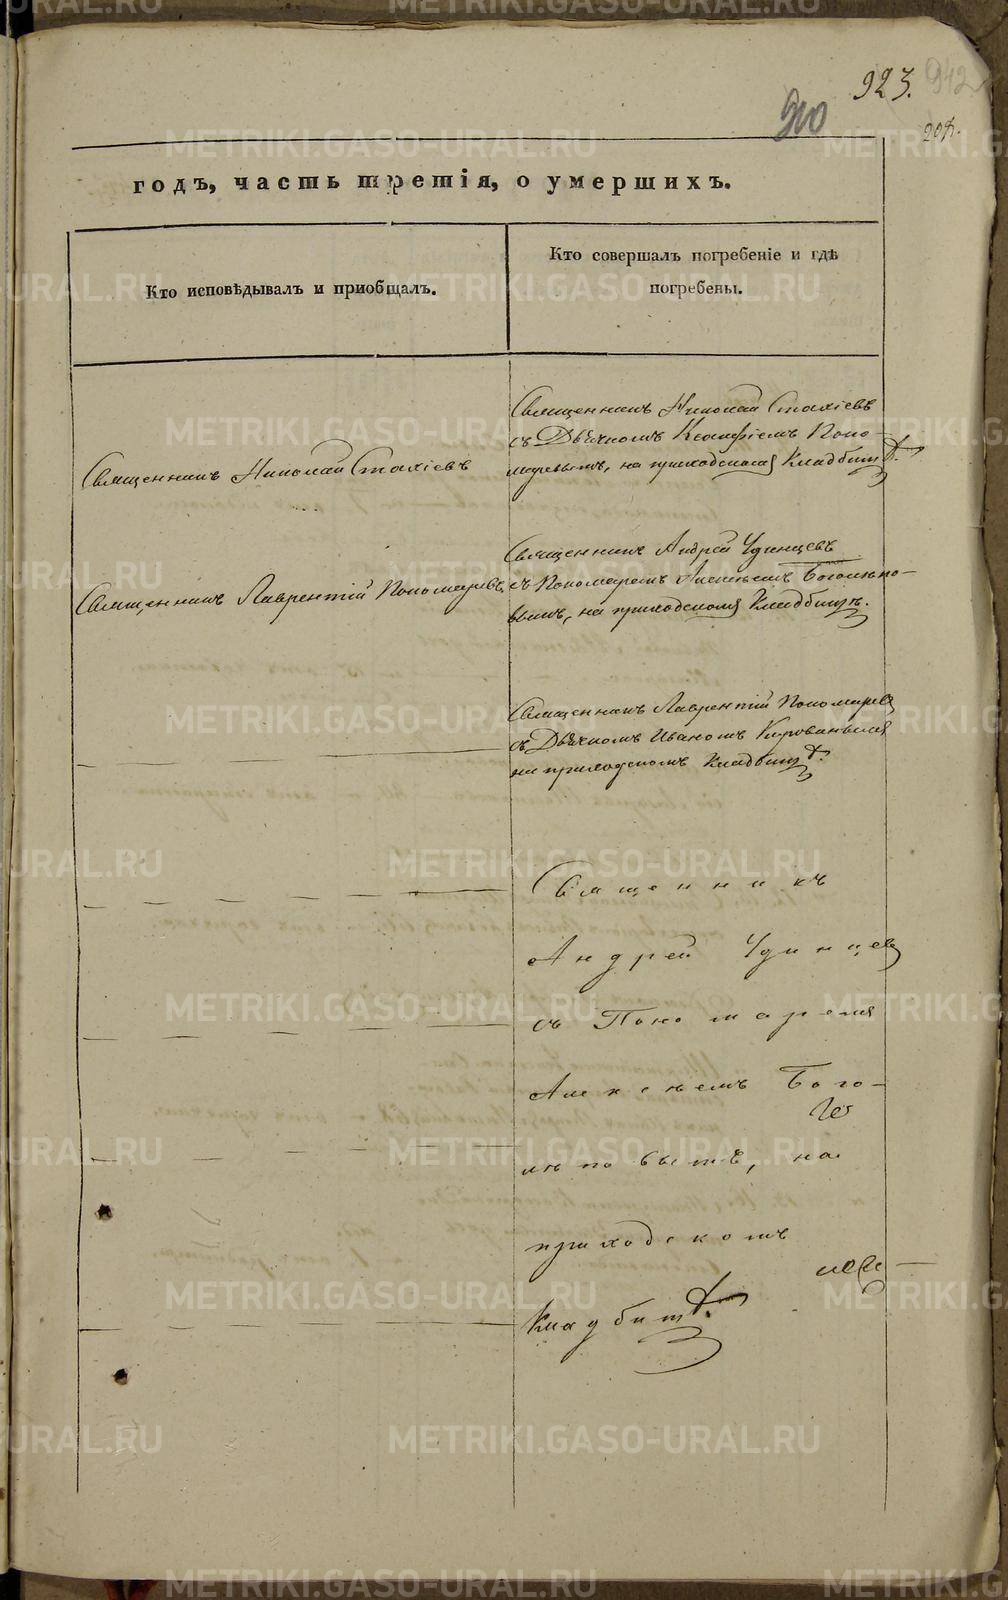 923.
942
910
годъ, часть третія, о умершихъ.
Кто исповѣдывалъ и приобщалъ.
Кто совершалъ погребеніе и гдѣ
погребены.
Священникъ Николай Стахіевъ
Священникъ Николай Стахіевъ
съ Дьячкомъ Ксанфіемъ Поно-
маревымъ, на приходскомъ Кладбищѣ.
Священникъ Лаврентій Пономаревъ
Священникъ Андрей Удинцевъ
съ Пономаремъ Алексѣемъ Боголѣпо-
вымъ, на приходскомъ Кладбищѣ.
Священникъ Лаврентій Пономаревъ
съ Дьячкомъ Иваномъ
на приходскомъ Кладбищѣ.
Священникъ
Андрей Удинцевъ
съ Пономаремъ
Алексѣемъ Бого-
лѣповымъ, на
приходскомъ
Кладбищѣ.
METRIKI.GASO-URAL.RU